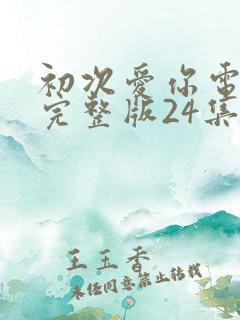 初次爱你电
完整版24集
王玉香
未经同意禁止转载